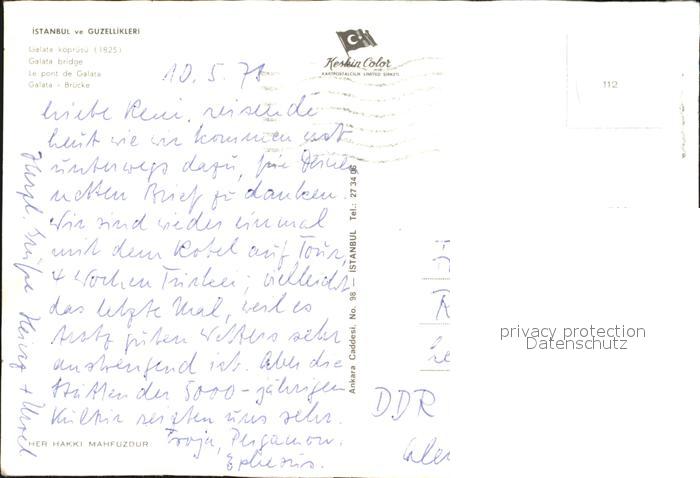 İSTANBUL ve GÜZELLİKLERİ
Galata köprüsü (1825)
Galata bridge
Le pont de Galata
Galata - Brücke
Keskin Color
KARTPOSTALCILIK LIMITED ŞIRKETI
112
10. 5. 78
Liebe Reni, reisende
heut wie wir kommen erst
unterwegs dazu, für Deinen
netten Brief zu danken.
Wir sind wieder einmal
mit dem Rotel auf Tour,
4 Wochen Türkei; vielleicht
das letzte Mal, weil es
trotz guten Wetters sehr
anstrengend ist. Aber die
Stätten der 5000-jährigen
Kultur reizten uns sehr.
Troja, Pergamon,
Ephesus.
Herzl. Grüße Heinz + Ursel
HER HAKKI MAHFUZDUR
Ankara Caddesi, No. 98 — İSTANBUL Tel.: 27 34 06
DDR
privacy protection
Datenschutz